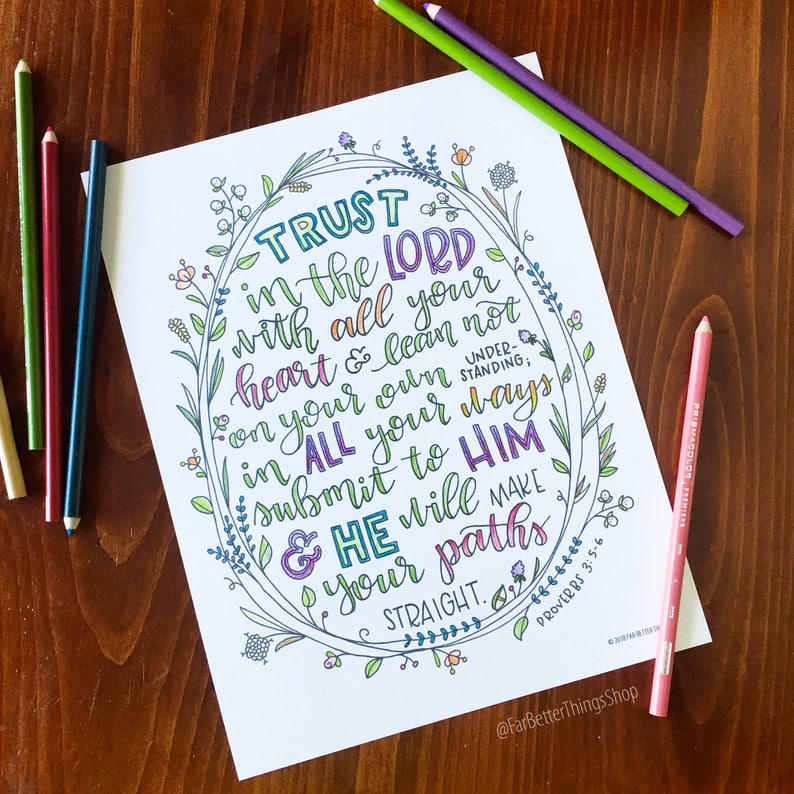 TRUST
in the LORD
with all your
heart & lean not
on your own UNDER-
STANDING;
in ALL your ways
submit to HIM
& HE will MAKE
your paths
STRAIGHT.
PROVERBS 3:5-6
© 2018 FAR BETTER
PRISMACOLOR PREMIER
@FarBetterThingsShop